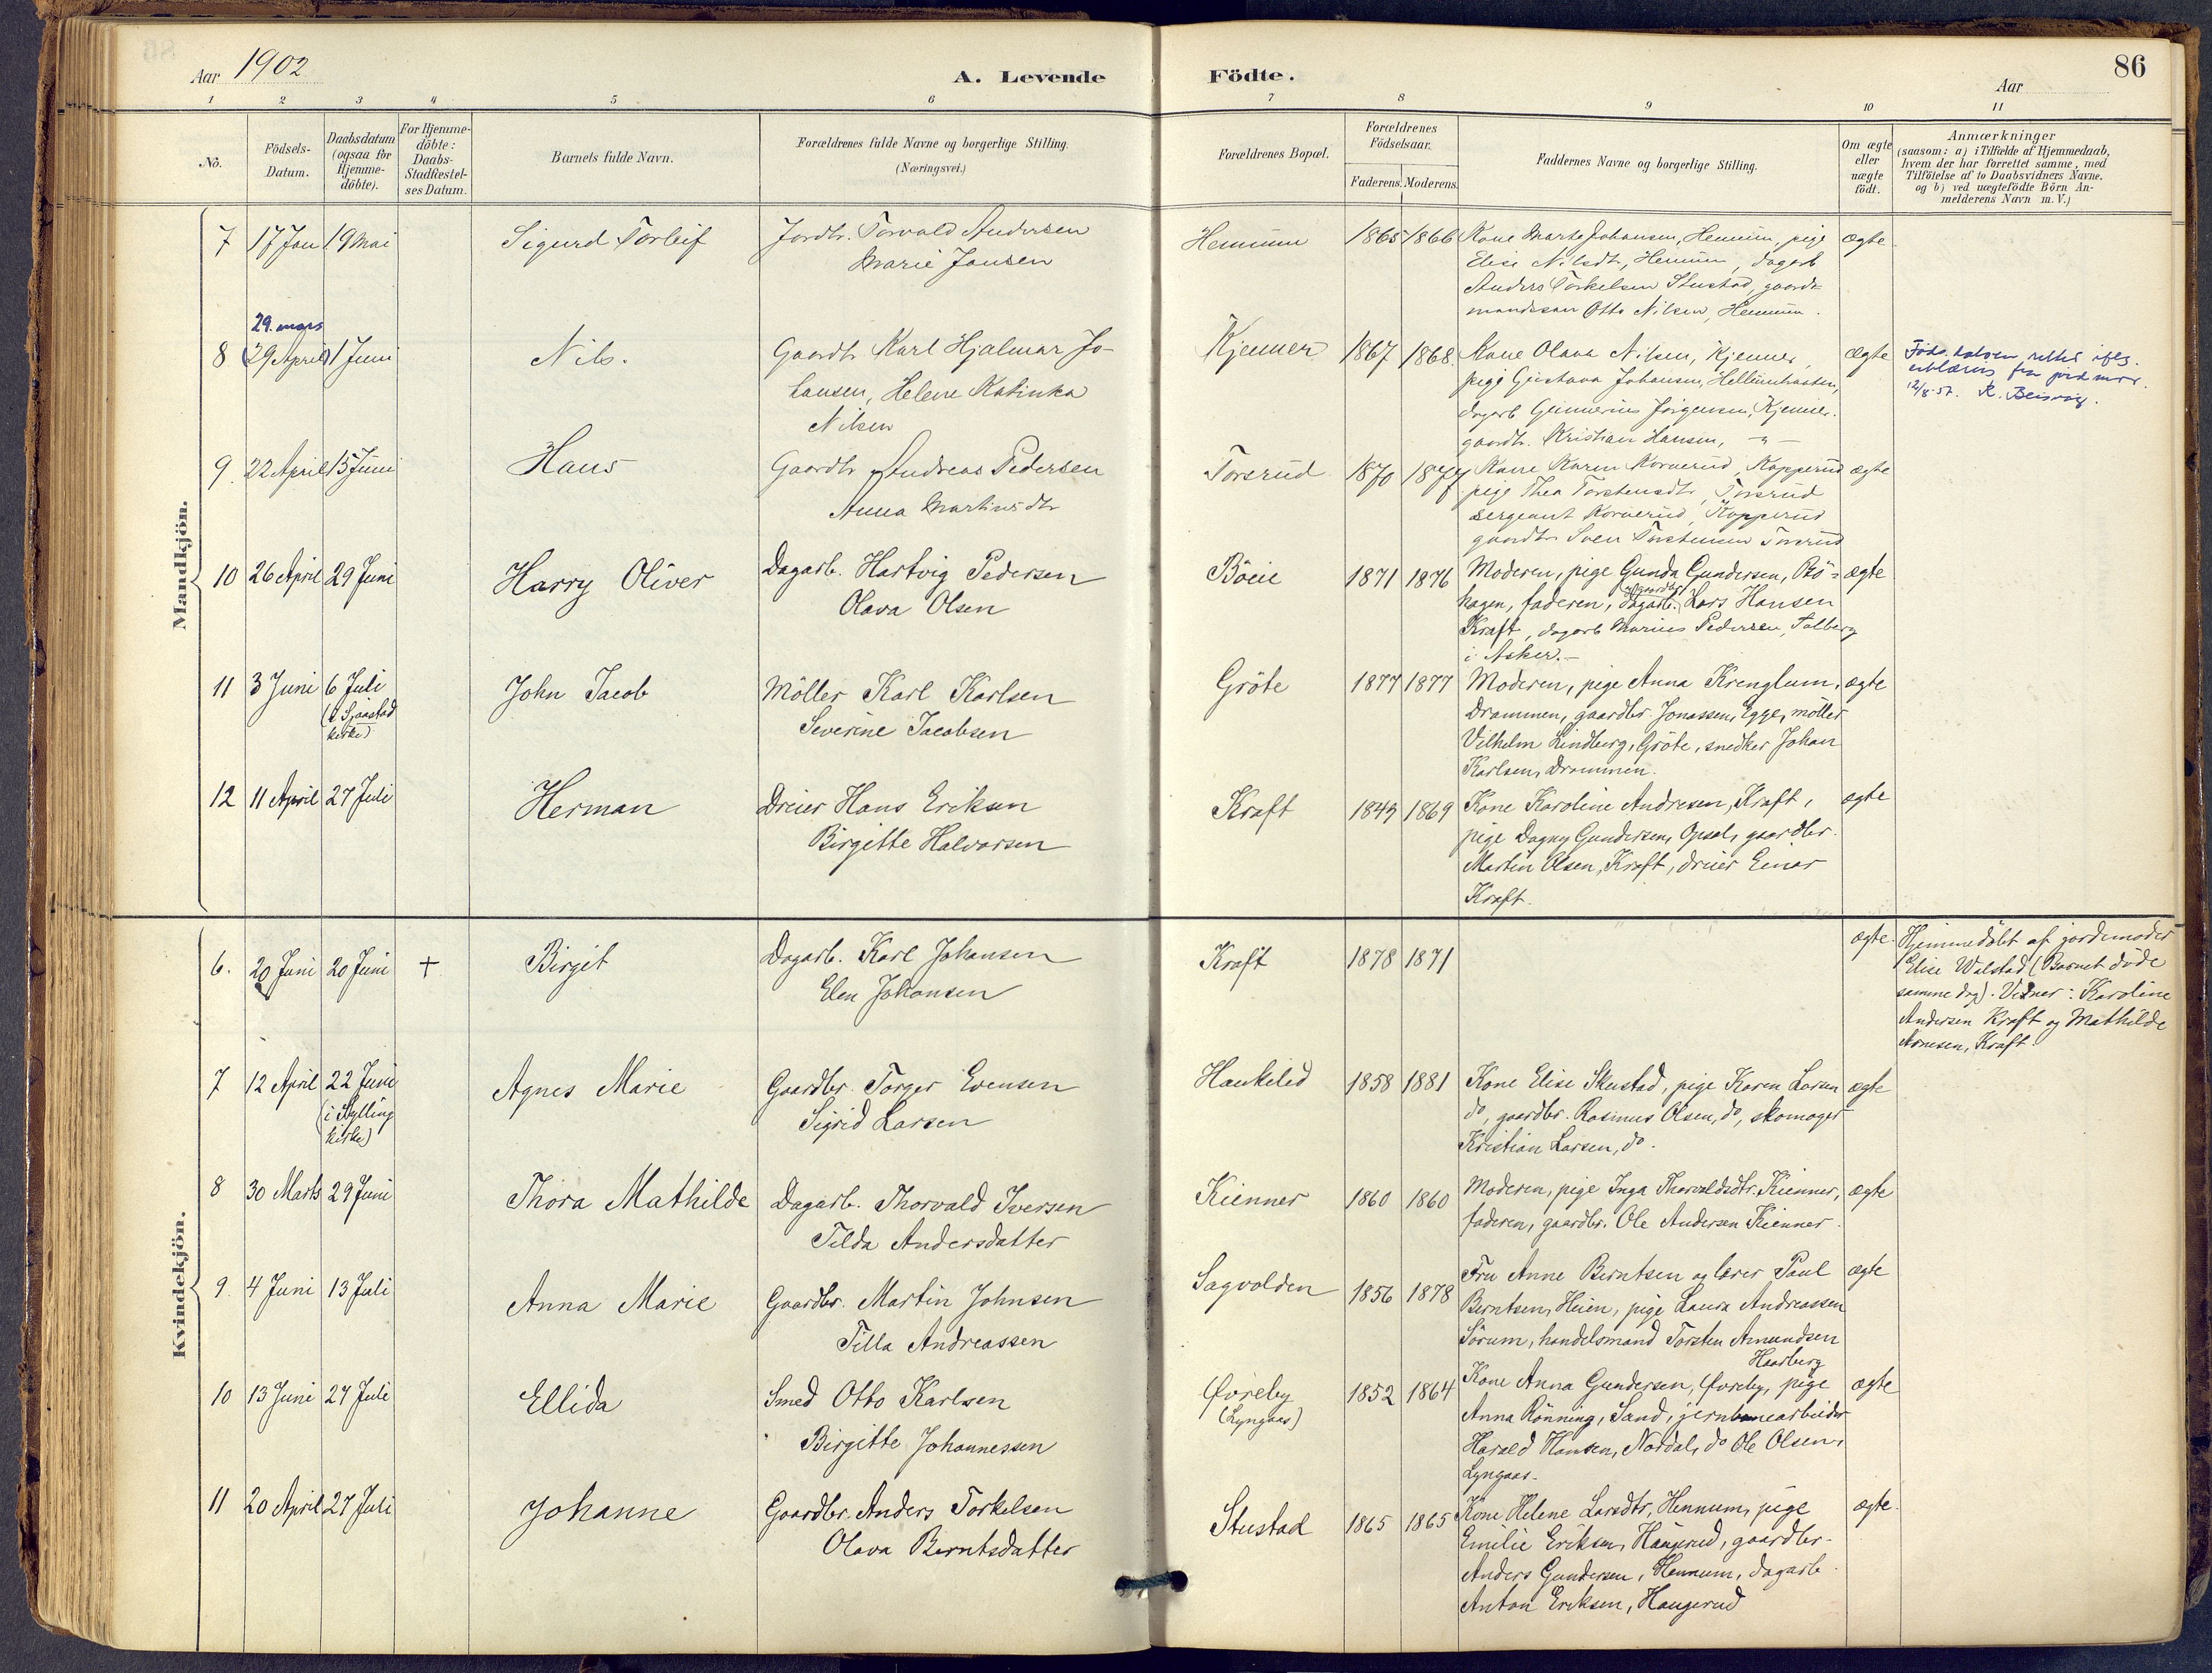 Aar 1902
A. Levende Födte.
Aar
86
1 2 3 4 5 6 7 8 9 10 11
No.
Födsels-Datum.
Daabsdatum (ogsaa for Hjemme-döbte).
For Hjemme-döbte: Daabs-Stadfæstel-ses Datum.
Barnets fulde Navn.
Forældrenes fulde Navne og borgerlige Stilling. (Næringsvei.)
Forældrenes Bopæl.
Forældrenes Födselsaar.
Faderens. Moderens.
Faddernes Navne og borgerlige Stilling.
Om ægte eller uægte födt.
Anmærkninger
(saasom: a) i Tilfælde af Hjemmedaab,
hvem der har forrettet samme, med
Tilföielse af to Daabsvidners Navne.
og b) ved uægtefödte Börn An-
melderens Navn m. V.)
Mandkjön.
7 17 Jan 19 Mai Sigurd Torleif Jordbr. Torvald Andersen
Marie Jansen
Hennum 1865 1866 Kone Marte Johansen, Hennum, pige ægte
Elise Nilsdtr, Hennum, dagarb
Anders Torkelsen Stustad, gaard-
mandssøn Otto Nilsen, Hennum.
29. mars
8 (29 April) 1 Juni Nils. Gaardbr Karl Hjalmar Jo-
hansen, Helene Katinka
Nilsen
Kjenner 1867 1868. Kone Olava Nilsen, Kjenner, ægte
pige Gustava Johansen,
dagarb Gunnerius Jörgensen, Kjenner.
gaardbr. Kristian Hansen, - " -
Føds. datoen rettet iflg.
erklæring fra jordmor.
12/8-57.
9. 22 April 15 Juni Hans Gaardbr Andreas Pedersen
Anna Martinsdtr
Torsrud 1870 1877 Kone Karen Korverud, Kopperud ægte
pige Thea Torstensdtr, Torsrud
sergeant Korverud, Kopperud
gaardbr Sven Torstensen Torsrud
10 26 April 29 Juni Harry Oliver Dagarb. Hartvig Pedersen
Olava Olsen
Böeie 1871 1876 Moderen, pige Gunda Gundersen, Bö- ægte
hagen, faderen, (dagarb.) Lars Hansen
Kraft, dagarb Marius Pedersen, Solberg
i Asker.-
11 3 Juni 6 Juli
(i Sjaastad
kirke)
John Jacob Möller Karl Karlsen
Severine Jacobsen
Gröte 1877 1877 Moderen, pige Anna Krenglum, ægte
Drammen, gaardbr. Jonassen, Egge, möller
Vilhelm Lindberg, Gröte, snedker Johan
Karlsen, Drammen.
12 11 April 27 Juli Herman Dreier Hans Eriksen
Birgitte Halvorsen
Kraft 1849 1869 Kone Karoline Andresen, Kraft, ægte
pige Dagny Gundersen, Opsal, gaardbr.
Martin Olsen, Kraft, dreier Einar
Kraft.
Kvindekjön.
6. 20 Juni 20 Juni + Birgit Dagarb. Karl Johansen
Elen Johansen
Kraft 1878 1871 ægte.
Hjemmedöbt af jordemoder
Elise Walstad (Barnet döde
samme dag). Vidner: Karoline
Andersen Kraft og Mathilde
Arnesen, Kraft.
7 12 April 22 Juni
(i Sylling
kirke)
Agnes Marie Gaardbr. Torger Evensen
Sigrid Larsen
Haukelid 1858 1881 Kone Elise Skustad, pige Karen Larsen ægte
do, gaardbr. Rasmus Olsen, do, skomager
Kristian Larsen, do.
8 30 Marts 29 Juni Thora Mathilde Dagarb. Thorvald Iversen
Tilda Andersdatter
Kienner 1860 1860 Moderen, pige Inga Thorvaldsdtr. Kienner, ægte
faderen, gaardbr. Ole Andersen Kienner.
9. 4 Juni 13 Juli Anna Marie Gaardbr. Martin Johnsen
Tilla Andreassen
Sagvolden 1856 1878 Fru Anne Berntsen og lærer Paul ægte
Berntsen, Heien, pige Laura Andreassen
Sörum, handelsmand Torsten Amundsen
Haarberg
10 13 Juni 27 Juli Ellida Smed Otto Karlsen
Birgitte Johannessen
Øvreby
(Lyngaas)
1852 1864 Kone Anna Gundersen, Øvreby, pige ægte
Anna Rönning, Sand, jernbanearbeider
Harald Hansen, Nordal, do Ole Olsen,
Lyngaas.
11 20 April 27 Juli Johanne Gaardbr. Anders Torkelsen
Olava Berntsdatter
Stustad 1865 1865 Kone Helene Larsdtr, Hennum, pige ægte.
Emilie Eriksen, Haugerud, gaardbr.
Anders Gundersen, Hennum, dagarb.
Anton Eriksen, Haugerud